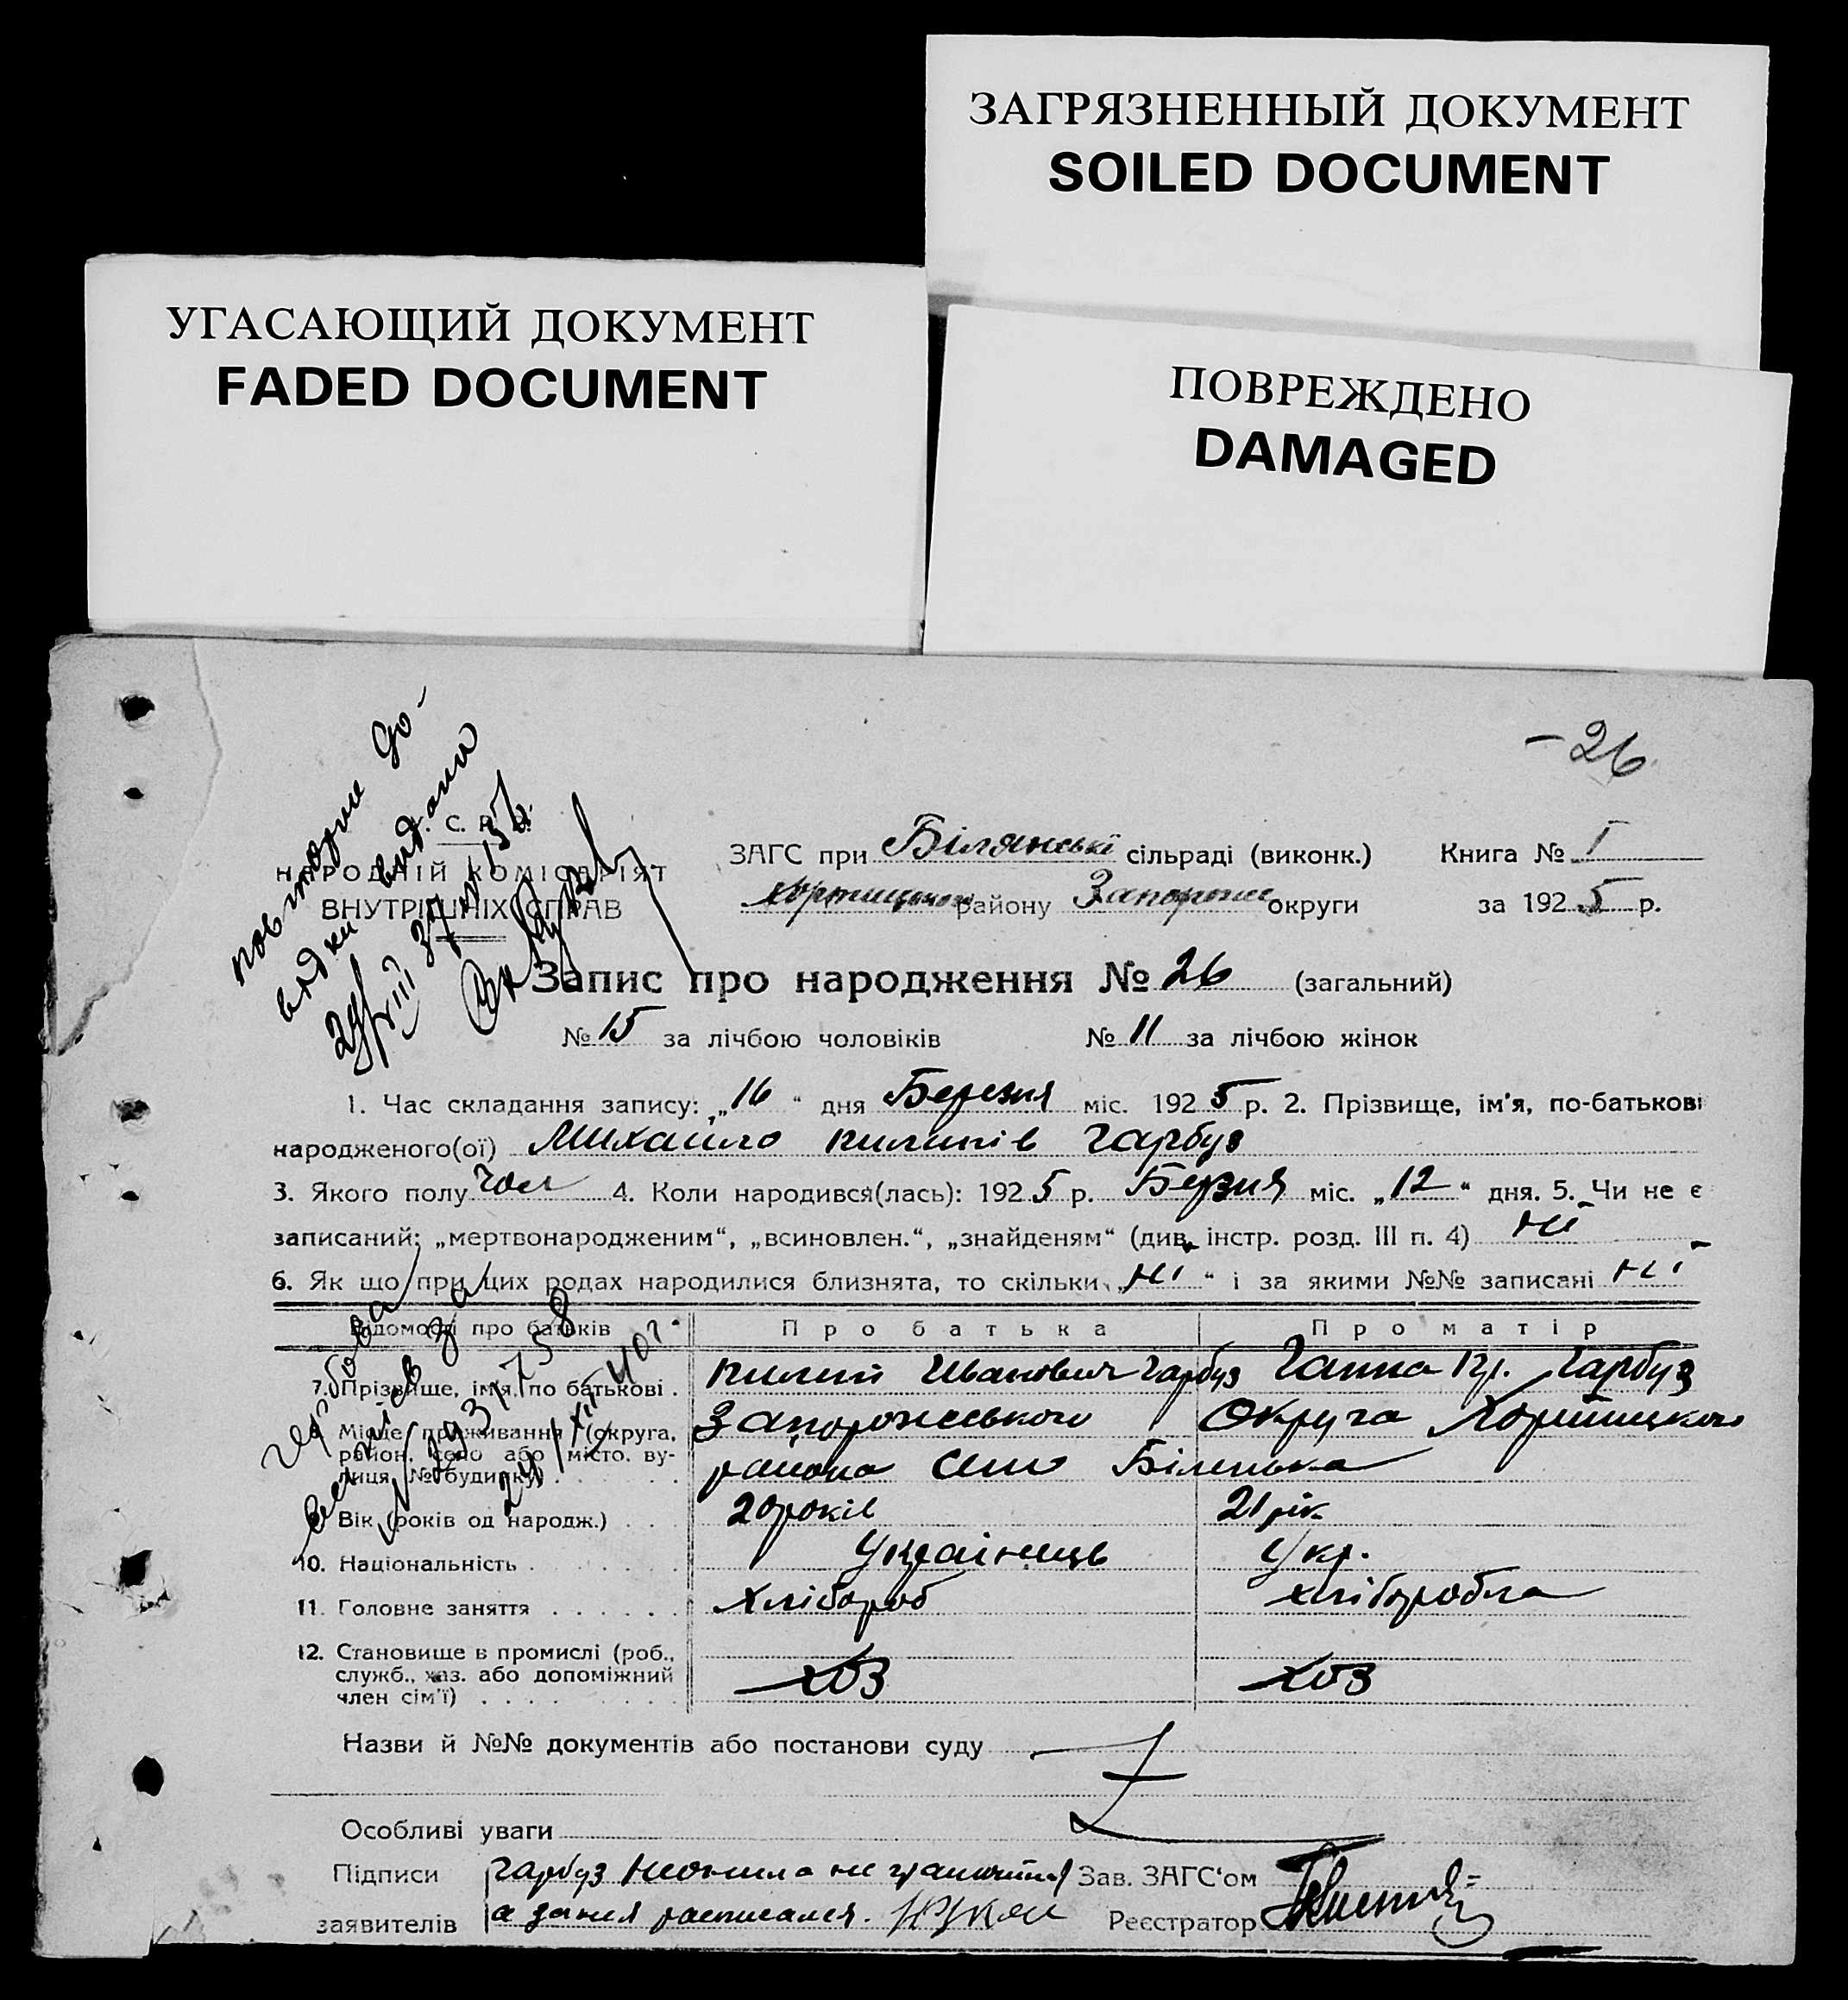 ЗАГРЯЗНЕННЫЙ ДОКУМЕНТ
SOILED DOCUMENT
УГАСАЮЩИЙ ДОКУМЕНТ
FADED DOCUMENT
ПОВРЕЖДЕНО
DAMAGED
- 26
повторне до-
відки видано
29/VIII 37
У. С. Р. Р.
НАРОДНІЙ КОМІСАРІЯТ
ВНУТРІШНІХ СПРАВ
ЗАГС при Білянські сільраді (виконк.) Книга № I
Хортицького району Запорожс округи за 1925 р.
Запис про народження № 26 (загальний)
№ 15 за лічбою чоловіків № 11 за лічбою жінок
1. Час складання запису: „16“ дня Березня міс. 1925 р. 2. Прізвище, ім'я, по-батькові
народженого(ої) Михайло пилипів Гарбуз
3. Якого полу чол 4. Коли народився(лась): 1925 р. Берзня міс. „12“ дня. 5. Чи не є
записаний: „мертвонародженим“, „всиновлен.“, „знайденям“ (див. інстр. розд. III п. 4) ні
6. Як що при цих родах народилися близнята, то скільки „ні“ і за якими №№ записані ні
Відомості про батьків Про батька Про матір
7. Прізвище, ім'я, по батькові . пилип Иванович Гарбуз Ганна Гарбуз
8. Місце проживання (округа, Запорожського Округа Хортицького
район, село або місто, ву- района село Біленька
лиця, № будинку)
9. Вік (років од народж.) . . 20 років 21 рік
10. Національність . . . . . Українець Укр.
11. Головне заняття . . . . . . Хлібороб хліборобка
12. Становище в промислі (роб.,
служб., хаз. або допоміжний хоз хоз
член сім'ї) . . . . . . . .
24/XII 40 г.
Назви й №№ документів або постанови суду
Особливі уваги
Підписи Гарбуз не Зав. ЗАГС'ом
заявителів а расписался. Реєстратор